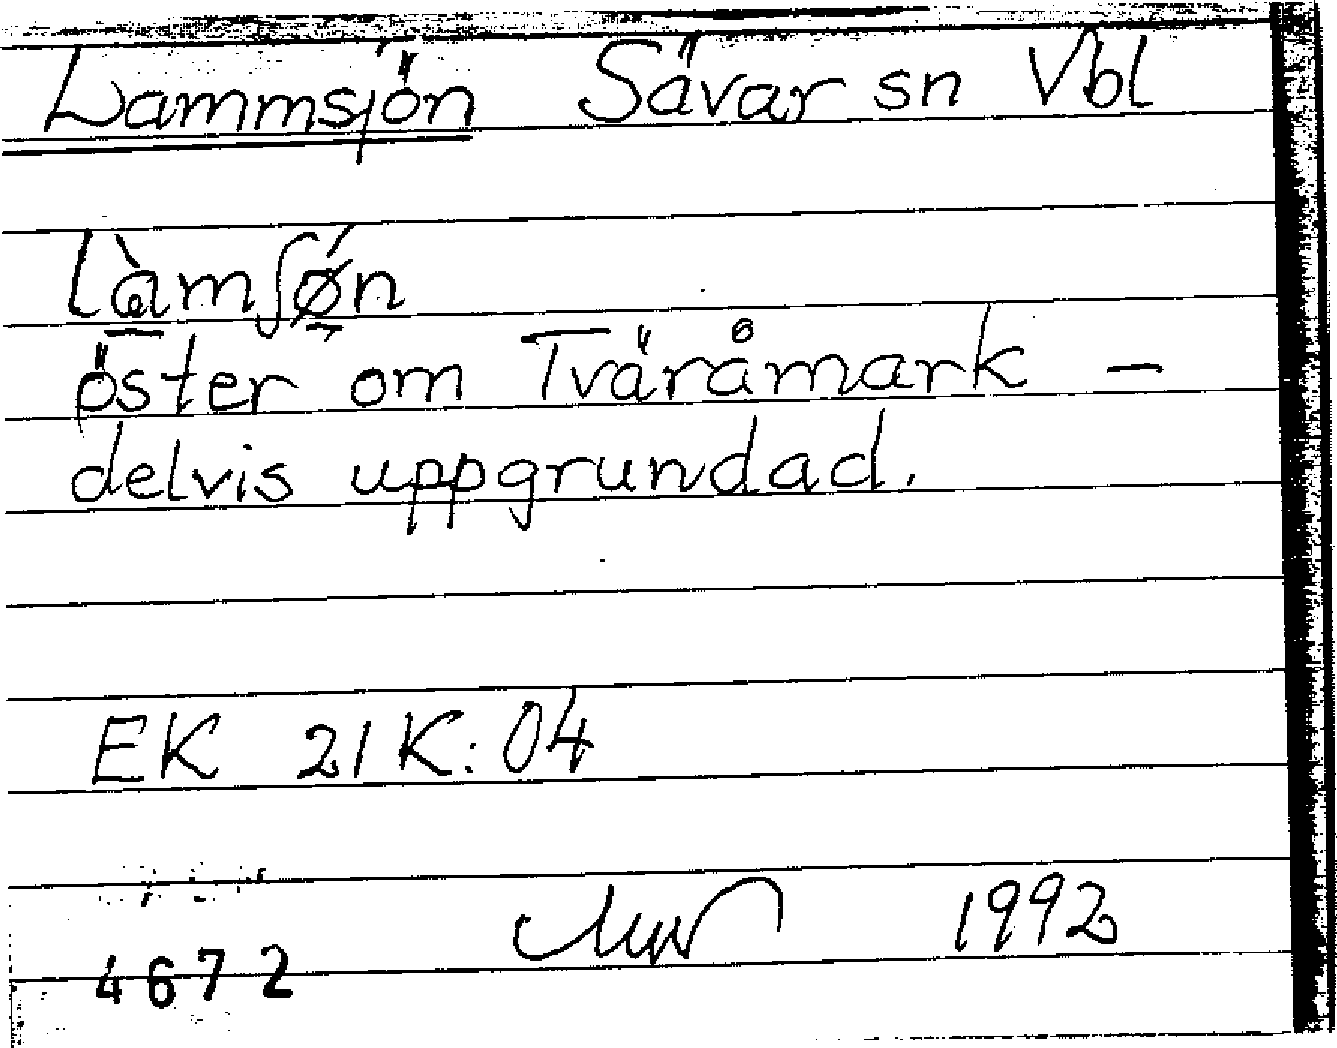 Lammsjön Sävar sn Vbl
Làmʃǿn
öster om Tväråmark –
delvis uppgrundad.
EK 21K:04
1992
4672